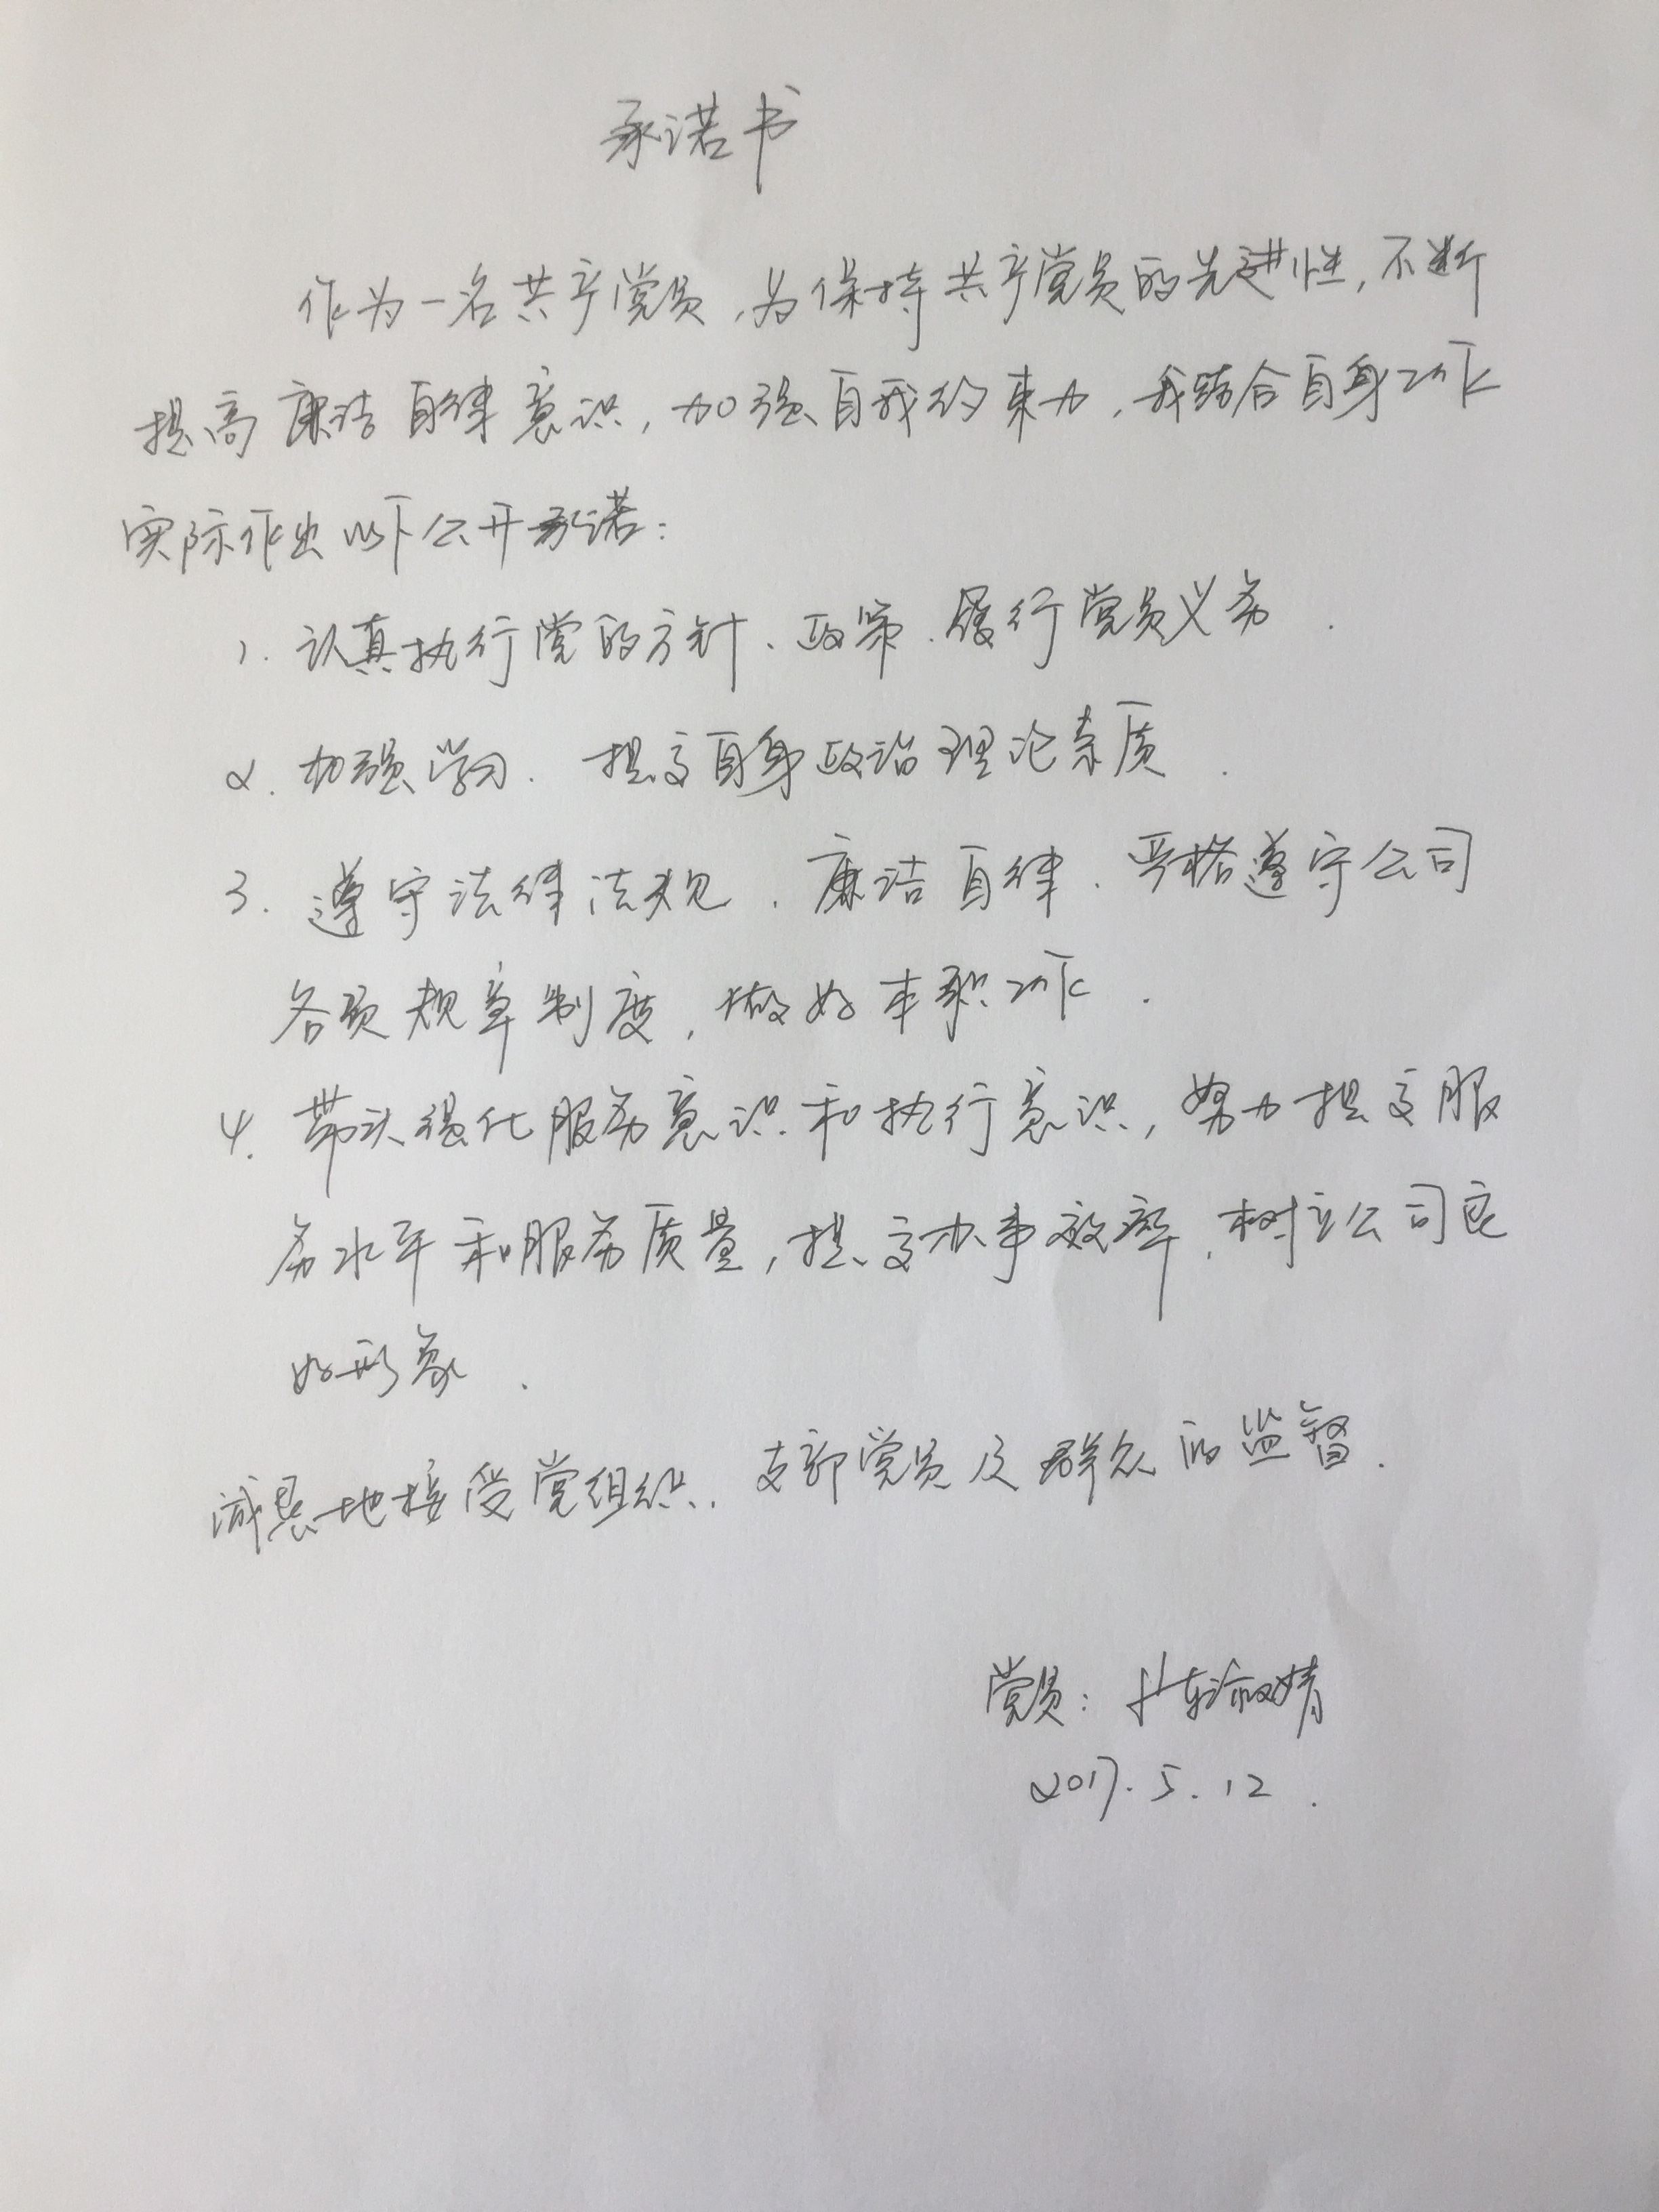 承诺书
作为一名共产党员,为保持共产党员的先进性,不断
提高廉洁自律意识,加强自我约束力,我结合自身工作
实际作出以下公开承诺:
1. 认真执行党的方针、政策、履行党员义务.
2. 加强学习.提高自身政治理论素质.
3. 遵守法律法规.廉洁自律.严格遵守公司
各项规章制度,做好本职工作.
4. 带头强化服务意识和执行意识,努力提高服
务水平和服务质量,提高办事效率.树立公司良
好形象.
诚恳地接受党组织.支部党员及群众的监督.
党员:
2017.5.12.